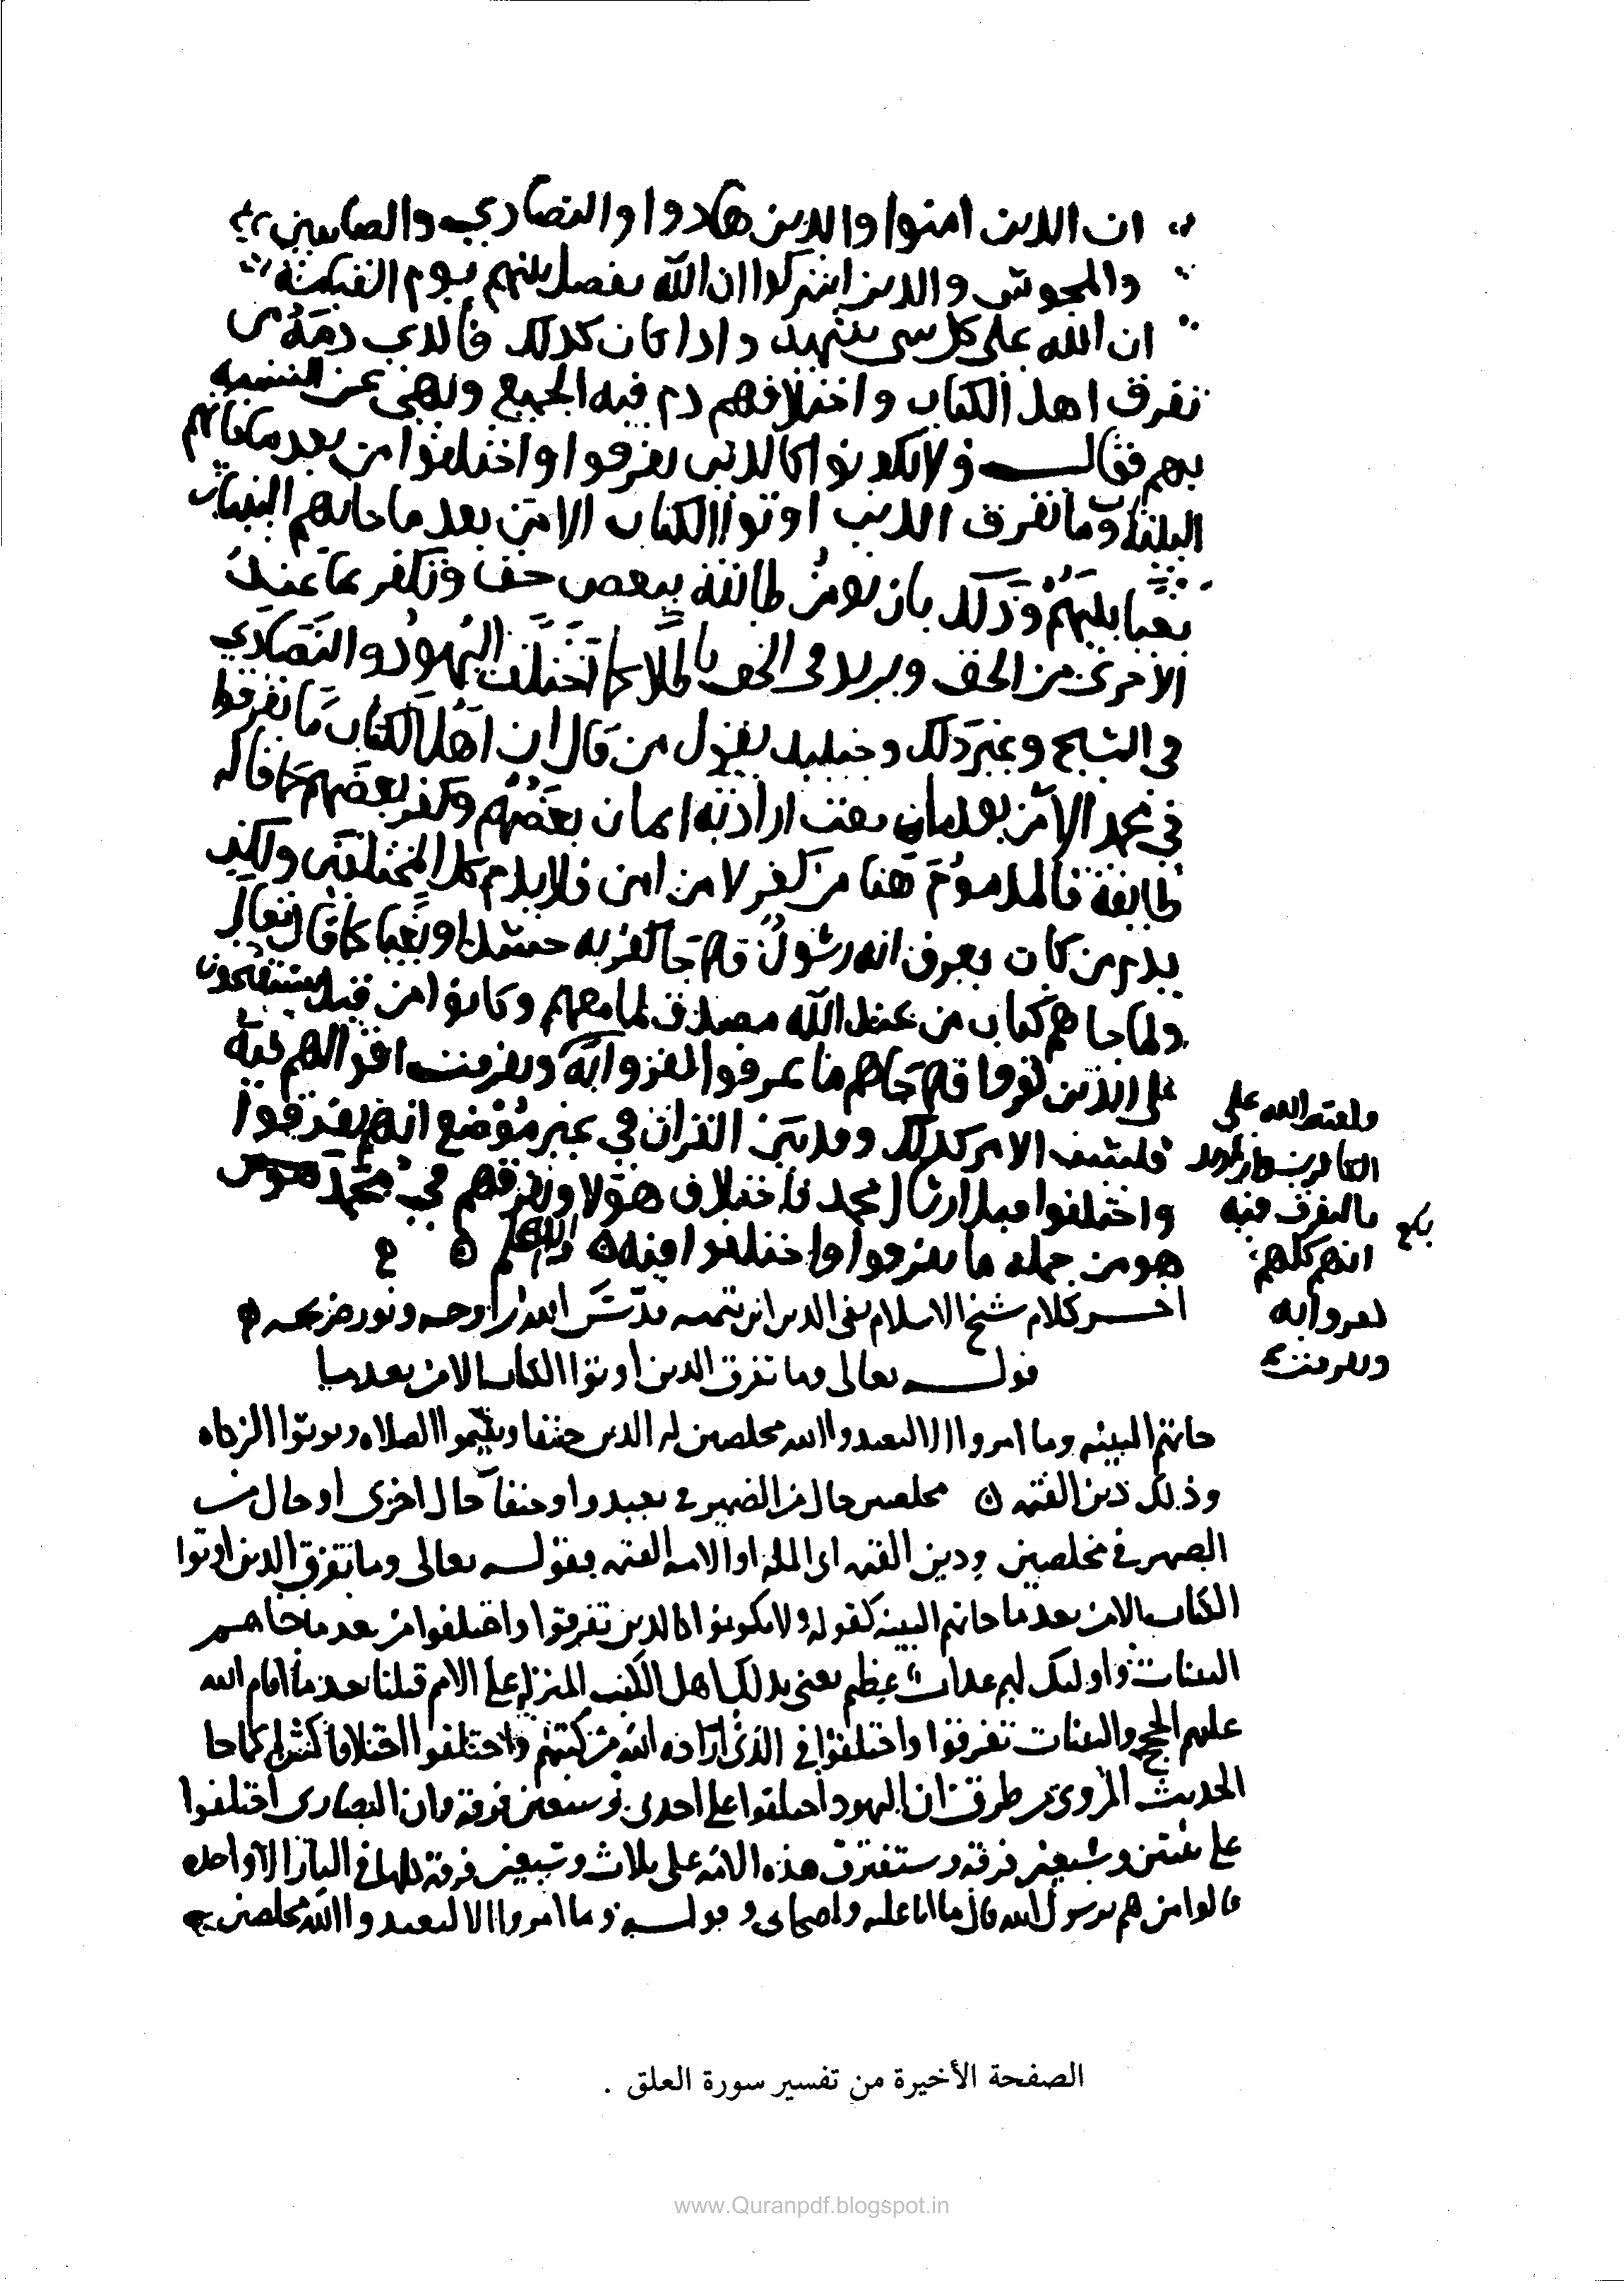 ان الذين امنوا والذين هادوا والنصارى والصابين
والمجوس والذين اشركوا ان الله يفصل بينهم يوم القيمة
ان الله على كل شي شهيد واذا كان كذلك فالذي ذمه من
تفرق اهل الكتاب واختلافهم ذم فيه الجميع ونهى عن التشبه
بهم فقال ولا تكونوا كالذين تفرقوا واختلفوا من بعد ما جاهم
البينات وما تفرق الذين اوتوا الكتاب الا من بعد ما جاتهم البينات
بغيا بينهم وذلك بان تومن طايفة ببعض حق وتكفر بما عند
الاخرى من الحق ويزيد في الحق باطلا كما اختلفت اليهود والنصارى
في المسيح وغير ذلك وحينيذ يقول من قال ان اهل الكتاب ما تفرقوا
في محمد الا من بعد ما بعث اراد به ايمان بعضهم وكفر بعضهم كما قاله
طايفة فالمذموم هنا من كفر لا من امن فلا يذم كل المختلفين ولكن
يذم من كان يعرف انه رسول فلما جا كفر به حسدا او بغيا كما قال تعالى
ولما جاهم كتاب من عند الله مصدق لما معهم وكانوا من قبل يستفتحون
على الذين كفروا فلما جاهم ما عرفوا كفروا به
فليس الامر كذلك وقد بين القران في غير موضع انهم تفرقوا
واختلفوا قبل ارسال محمد فاختلاف هولا وتفرقهم في محمد
هو من جملة ما تفرقوا واختلفوا فيه والله اعلم
فلعنة الله على
الكافرين
بالتفرق فيه
انهم كلهم
كفروا به
اخر كلام شيخ الاسلام تقي الدين ابن تيميه قدس الله روحه ونور ضريحه
قوله تعالى وما تفرق الذين اوتوا الكتاب الا من بعد ما
جاتهم البينه وما امروا الا ليعبدوا الله مخلصين له الدين حنفا ويقيموا الصلاه ويوتوا الزكاه
وذلك دين القيمه مخلصين حال من الضمير في يعبدوا وحنفا حال اخرى او حال من
الضمير في مخلصين ودين القيمه اى المله او الامه القيمه بقوله تعالى وما تفرق الذين اوتوا
الكتاب الا من بعد ما جاتهم البينه كقوله ولا تكونوا كالذين تفرقوا واختلفوا من بعد ما جاهم
البينات واوليك لهم عذاب عظيم يعنى بذلك اهل الكتب المنزله على الامم قبلنا بعد ما اقام الله
عليهم الحجج والبينات تفرقوا واختلفوا في الذي اراده الله من كتبهم واختلفوا اختلافا كثيرا كما جا
الحديث المروي من طرق ان اليهود اختلفوا على احدى وسبعين فرقه وان النصارى اختلفوا
على ثنتين وسبعين فرقه وستفترق هذه الامه على ثلاث وسبعين فرقه كلها في النار الا واحده
قالوا من هم يرسول الله قال ما انا عليه واصحابى وقوله وما امروا الا ليعبدوا الله مخلصين
الصفحة الأخيرة من تفسير سورة العلق .
www.Quranpdf.blogspot.in